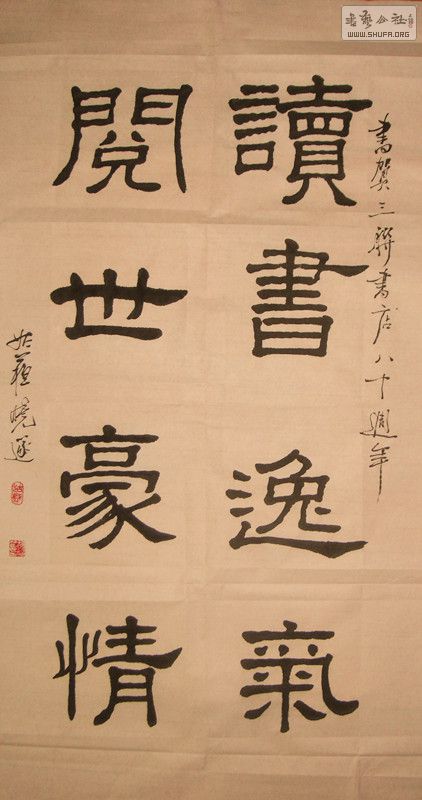 書賀三聯書店八十週年
讀書逸氣
閱世豪情
姑蘇曉遂
書藝公社
WWW.SHUFA.ORG